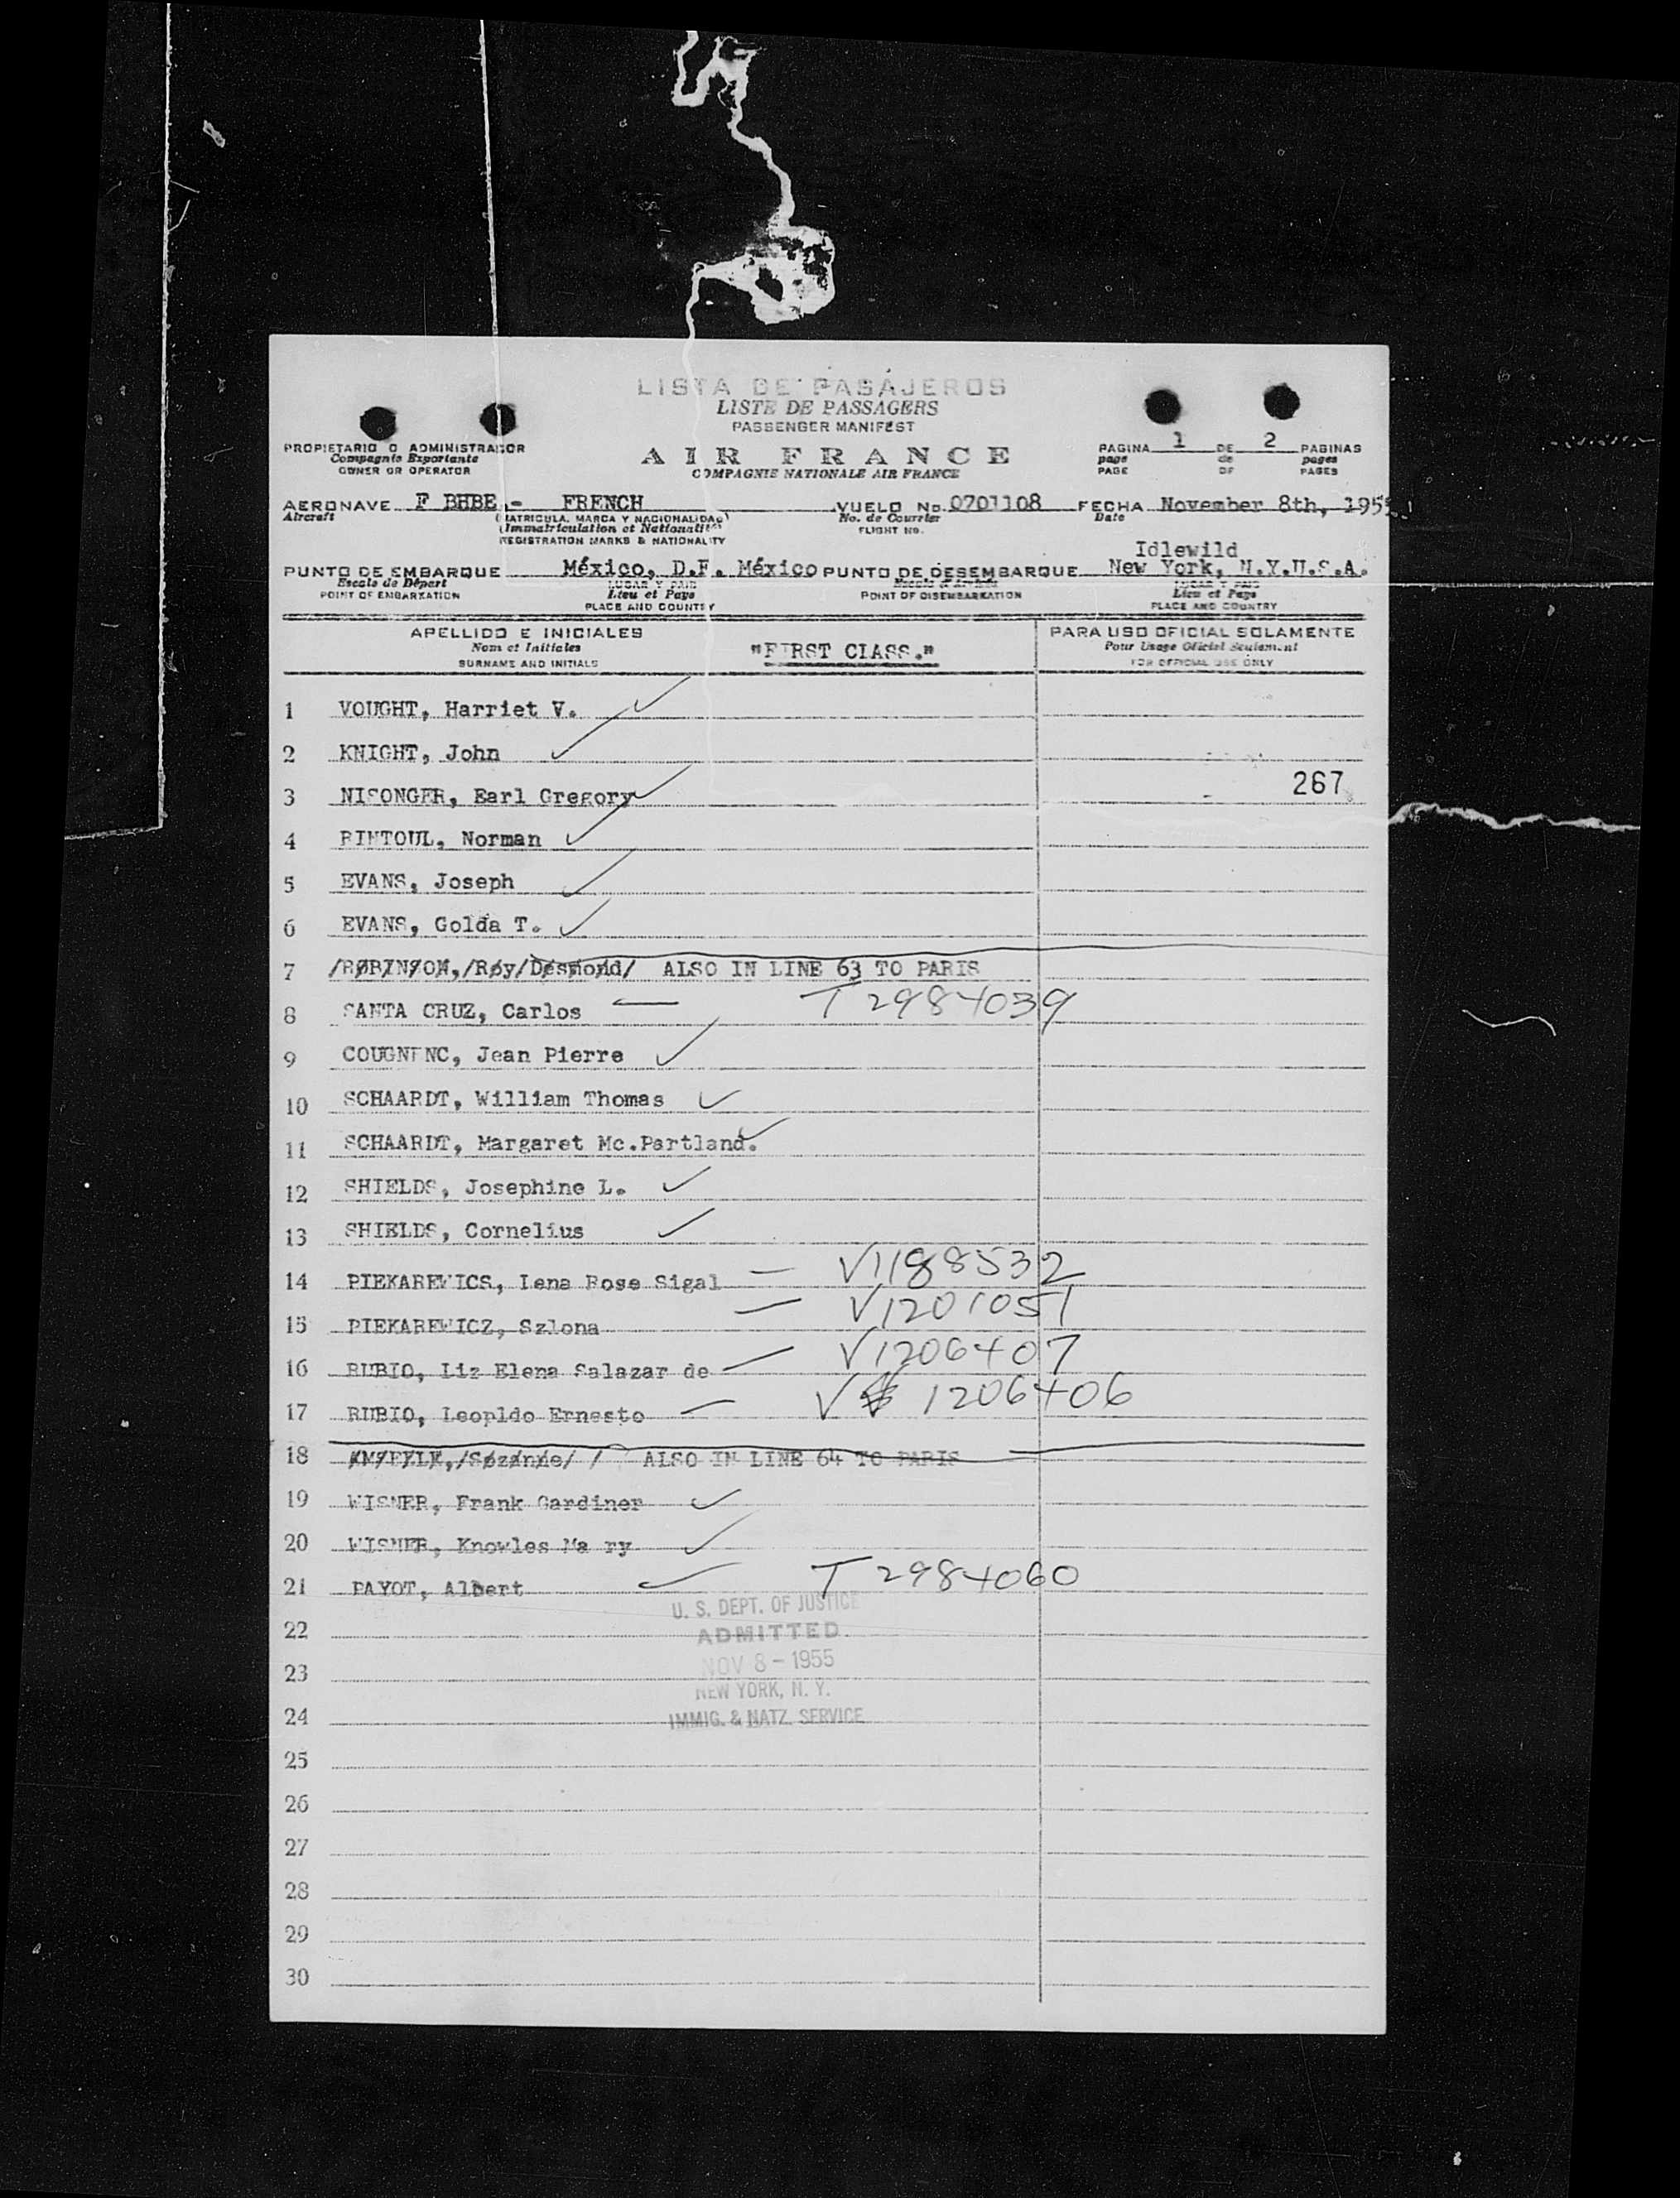 LISTA DE PASAJEROS
LISTE DE PASSAGERS
PASSENGER MANIFEST
PROPIETARIO O ADMINISTRADOR
Compagnie Exportante
OWNER OR OPERATOR
AIR FRANCE
COMPAGNIE NATIONALE AIR FRANCE
PAGINA 1 DE 2 PAGINAS
page de pages
PAGE OF PAGES
AERONAVE F BHBE - FRENCH VUELO No. 0701108 FECHA November 8th, 1955
Aircraft (MATRICULA, MARCA Y NACIONALIDAD) No. de Courrier Date
(Immatriculation et Nationalité) FLIGHT NO.
REGISTRATION MARKS & NATIONALITY
Idlewild
PUNTO DE EMBARQUE México, D.F. México PUNTO DE DESEMBARQUE New York, N.Y.U.S.A.
Escale de Départ LUGAR Y PAIS Escale d'Arrivée LUGAR Y PAIS
POINT OF EMBARKATION Lieu et Pays POINT OF DISEMBARKATION Lieu et Pays
PLACE AND COUNTRY PLACE AND COUNTRY
APELLIDO E INICIALES
Nom et Initiales
SURNAME AND INITIALS
"FIRST CLASS."
PARA USO OFICIAL SOLAMENTE
Pour Usage Oficiel Seulement
FOR OFFICIAL USE ONLY
1 VOUGHT, Harriet V.
2 KNIGHT, John
267
3 NISONGER, Earl Gregory
4 RINTOUL, Norman
5 EVANS, Joseph
6 EVANS, Golda T.
7 /ROBINSON,/Roy/Desmond/ ALSO IN LINE 63 TO PARIS
8 SANTA CRUZ, Carlos — T 2984039
9 COUGNENC, Jean Pierre
10 SCHAARDT, William Thomas
11 SCHAARDT, Margaret Mc.Partland.
12 SHIELDS, Josephine L.
13 SHIELDS, Cornelius
14 PIEKAREWICS, Lena Rose Sigal — V1188532
15 PIEKAREWICZ, Szlona — V1201051
16 RUBIO, Liz Elena Salazar de — V1206407
17 RUBIO, Leopldo Ernesto — V 1206406
18 ALSO IN LINE 64 TO PARIS
19 WISNER, Frank Gardiner
20 WISNER, Knowles Ma ry
21 PAYOT, Albert T 2984060
U. S. DEPT. OF JUSTICE
22
ADMITTED
NOV 8 - 1955
23
NEW YORK, N. Y.
24
IMMIG. & NATZ. SERVICE
25
26
27
28
29
30